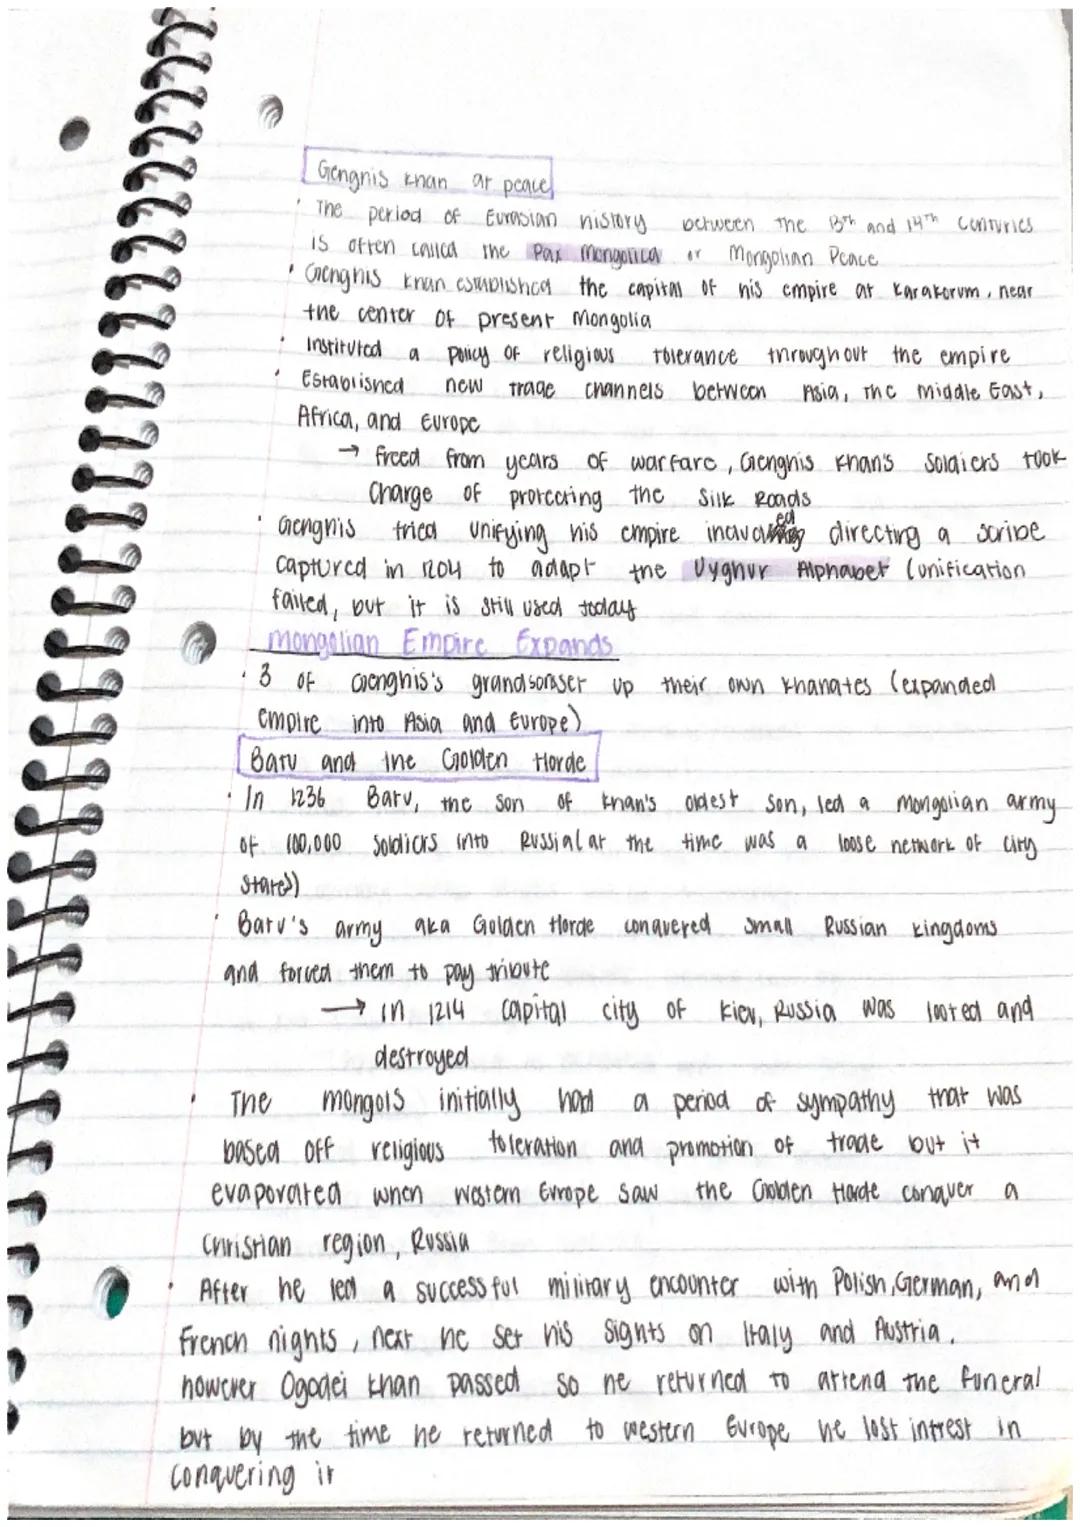 Gengnis Khan at peace
• The period of Eurasian history between the 13th and 14th Centuries
is often called the Pax Mongolica or Mongolian Peace
• Genghis Khan established the capital of his empire at Karakorum, near
the center of present Mongolia
• Instituted a policy of religious tolerance throughout the empire
• Established new trade channels between Asia, The Middle East,
Africa, and Europe
→ freed from years of warfare, Genghis Khan's Soldiers took
Charge of protecting the Silk Roads
• Genghis tried unifying his empire included directing a scribe
captured in 1204 to adapt the Uyghur Alphabet (unification
failed, but it is still used today
Mongolian Empire Expands
• 3 of Genghis's grandsons set up their own khanates (expanded
empire into Asia and Europe)
Batu and the Golden Horde
• In 1236 Batu, the son of Khan's oldest son, led a Mongolian army
of 100,000 Soldiers into Russia(at the time was a loose network of city
states))
• Batu's army aka Golden Horde conquered small Russian kingdoms
and forced them to pay tribute
→ in 1214 capital city of Kiev, Russia was looted and
destroyed
• The mongols initially had a period of sympathy that was
based off religious toleration and promotion of trade but it
evaporated when western Europe saw the Golden Horde conquer a
Christian region, Russia
• After he led a successful military encounter with Polish, German, and
French nights, next he set his sights on Italy and Austria,
however Ogodei Khan passed so he returned to attend the funeral
but by the time he returned to western Europe he lost intrest in
conquering it